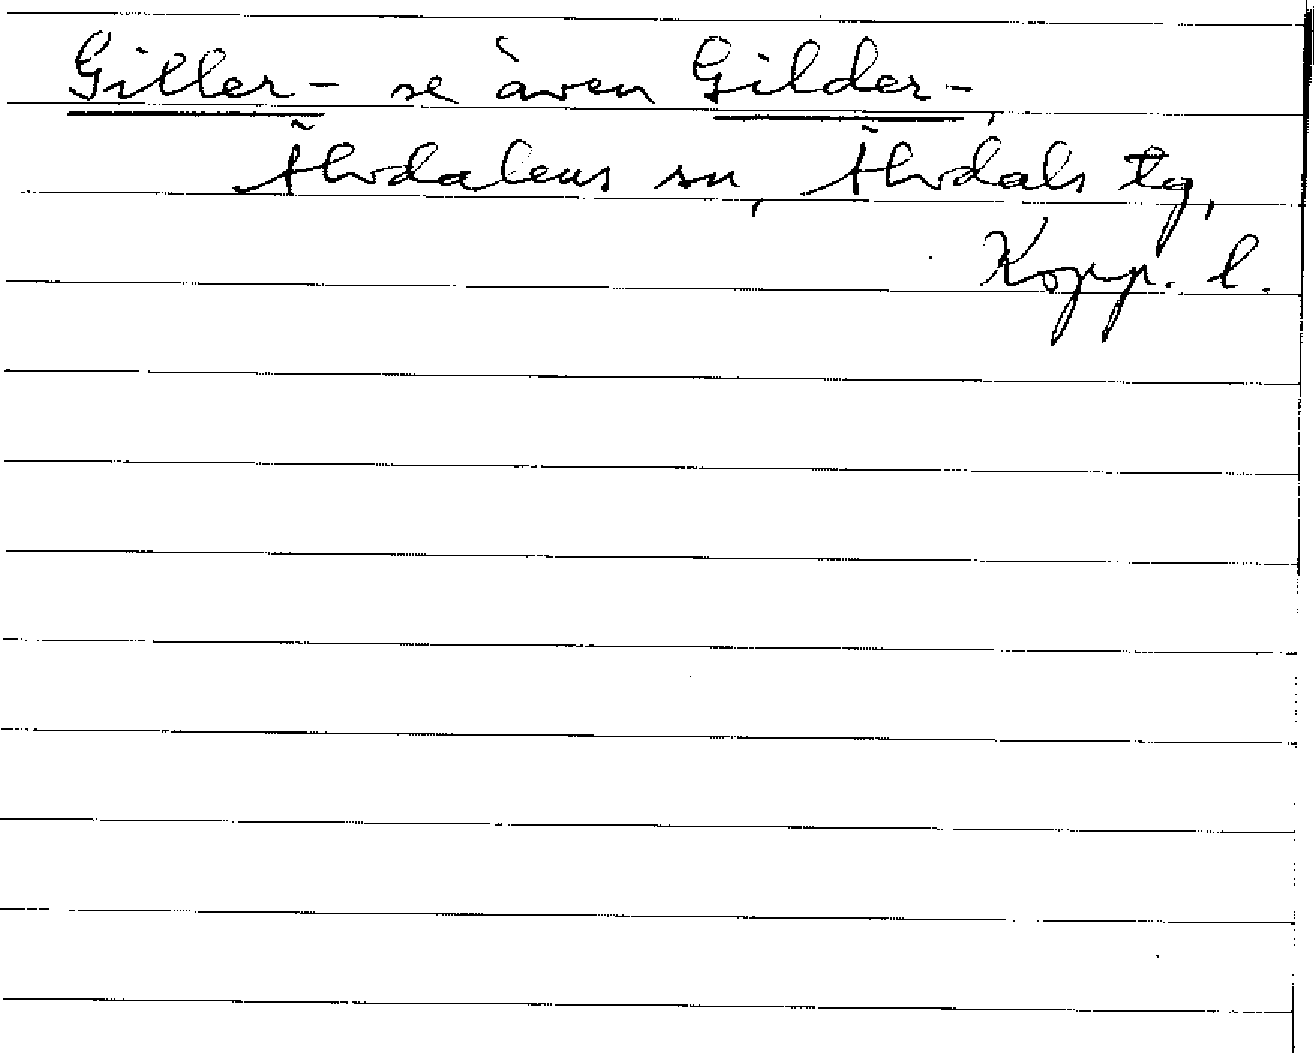 Giller- se även Gilder-,
Älvdalens sn, Älvdals tg,
Kopp. l.